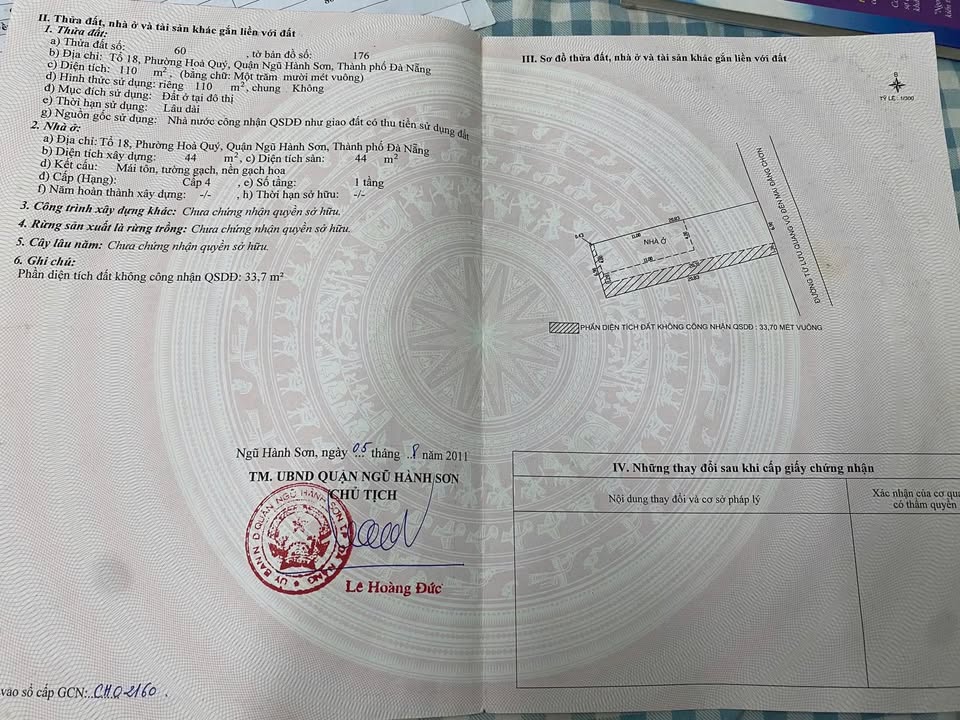 II. Thửa đất, nhà ở và tài sản khác gắn liền với đất
1. Thửa đất:
a) Thửa đất số: 60 , tờ bản đồ số: 176
b) Địa chỉ: Tổ 18, Phường Hoà Quý, Quận Ngũ Hành Sơn, Thành phố Đà Nẵng
c) Diện tích: 110 m², (bằng chữ: Một trăm mười mét vuông)
d) Hình thức sử dụng: riêng 110 m², chung Không
đ) Mục đích sử dụng: Đất ở tại đô thị
e) Thời hạn sử dụng: Lâu dài
g) Nguồn gốc sử dụng: Nhà nước công nhận QSDĐ như giao đất có thu tiền sử dụng đất
2. Nhà ở:
a) Địa chỉ: Tổ 18, Phường Hoà Quý, Quận Ngũ Hành Sơn, Thành phố Đà Nẵng
b) Diện tích xây dựng: 44 m², c) Diện tích sàn: 44 m²
d) Kết cấu: Mái tôn, tường gạch, nền gạch hoa
đ) Cấp (Hạng): Cấp 4 , e) Số tầng: 1 tầng
f) Năm hoàn thành xây dựng: -/- , h) Thời hạn sở hữu: -/-
3. Công trình xây dựng khác: Chưa chứng nhận quyền sở hữu.
4. Rừng sản xuất là rừng trồng: Chưa chứng nhận quyền sở hữu.
5. Cây lâu năm: Chưa chứng nhận quyền sở hữu.
6. Ghi chú:
Phần diện tích đất không công nhận QSDĐ: 33,7 m²
Ngũ Hành Sơn, ngày 05 tháng 8 năm 2011
TM. UBND QUẬN NGŨ HÀNH SƠN
CHỦ TỊCH
ỦY BAN N D QUẬN NGŨ HÀNH SƠN TP ĐÀ NẴNG
Lê Hoàng Đức
vào sổ cấp GCN: CH02160 .
III. Sơ đồ thửa đất, nhà ở và tài sản khác gắn liền với đất
B
TỶ LỆ : 1/300
ĐƯỜNG TỪ LƯU QUANG VŨ ĐẾN MAI ĐĂNG CHƠN
NHÀ Ở
11.00
11.00
PHẦN DIỆN TÍCH ĐẤT KHÔNG CÔNG NHẬN QSDĐ : 33,70 MÉT VUÔNG
IV. Những thay đổi sau khi cấp giấy chứng nhận
Nội dung thay đổi và cơ sở pháp lý
Xác nhận của cơ qua
có thẩm quyền